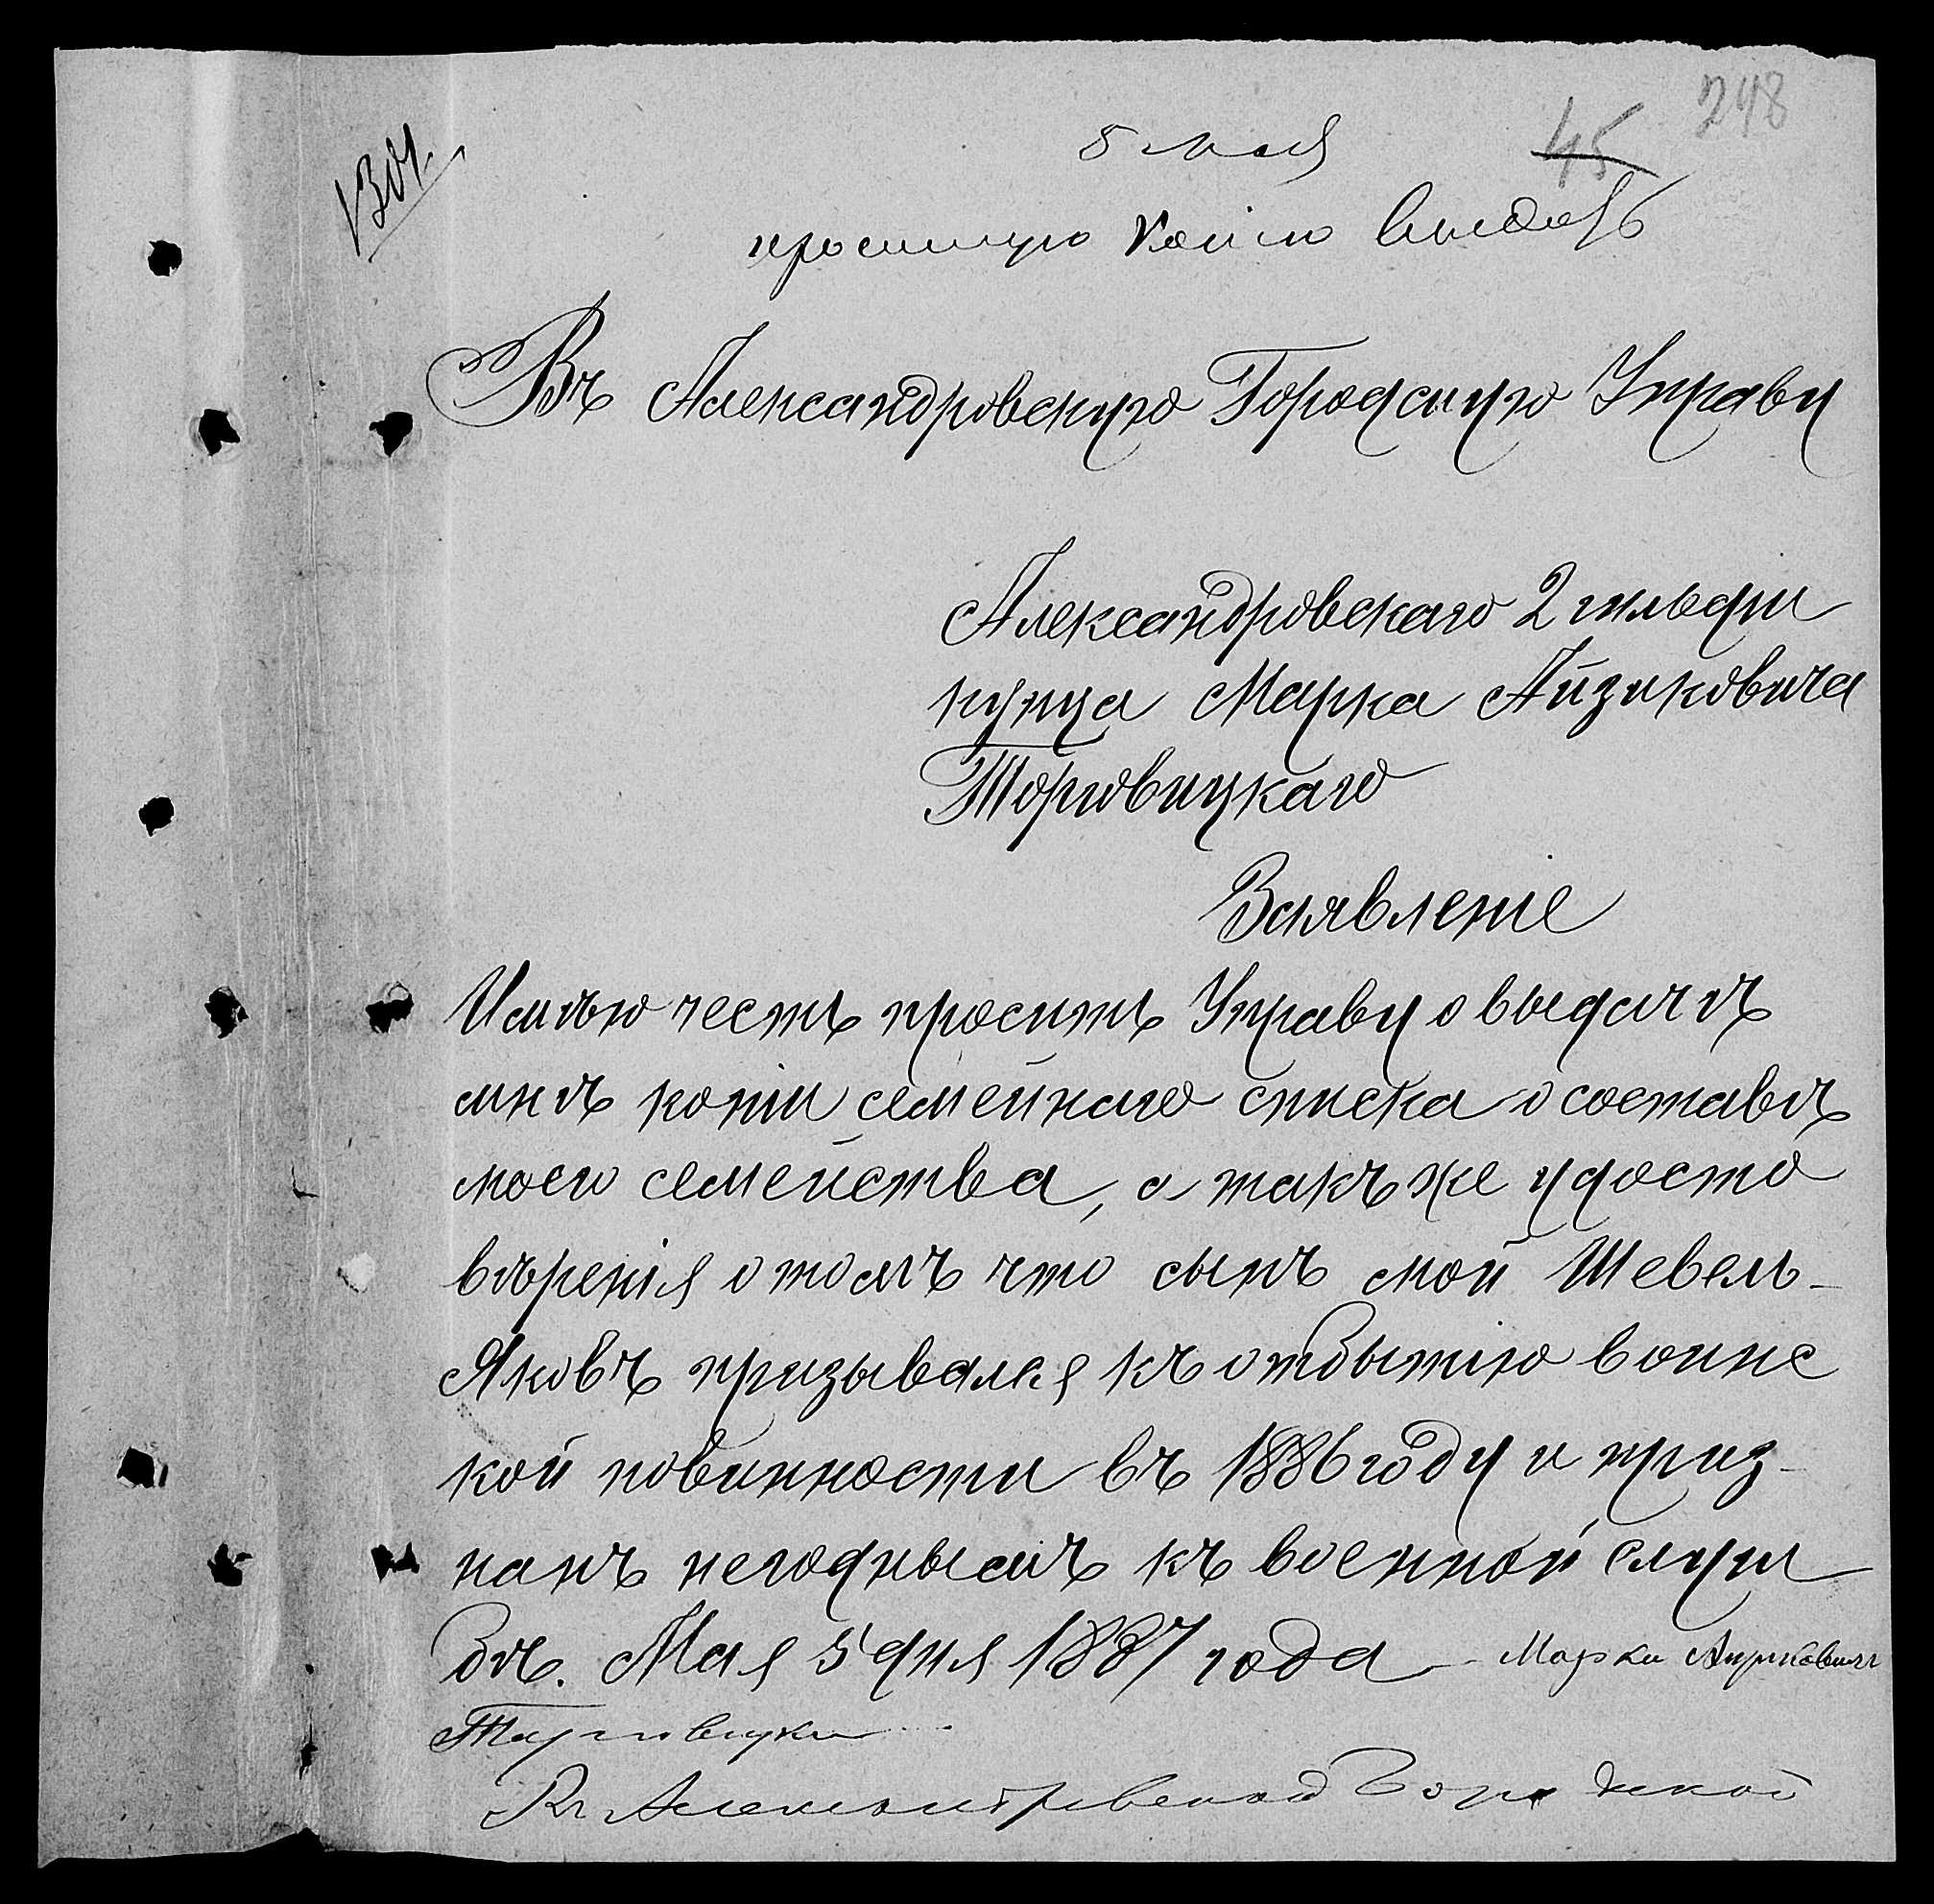 248
45
1304.
5 мая
простую копію выдать
Въ Александровскую Городскую Управу
Александровскаго 2 гильдіи
купца Марка Айзиковича
Торговицкаго
Заявленіе
Имѣю честь просить Управу о выдачѣ
мнѣ копіи семейнаго списка о составѣ
моего семейства, а такъ же удосто
вѣренія о томъ что сынъ мой Шевель-
Яковъ призывался къ отбытію воинс
кой повинности въ 1886 году и приз-
нанъ негоднымъ къ военной служ
бѣ. Мая 5 дня 1887 года - Марки
Торговицки
Александровской Городской